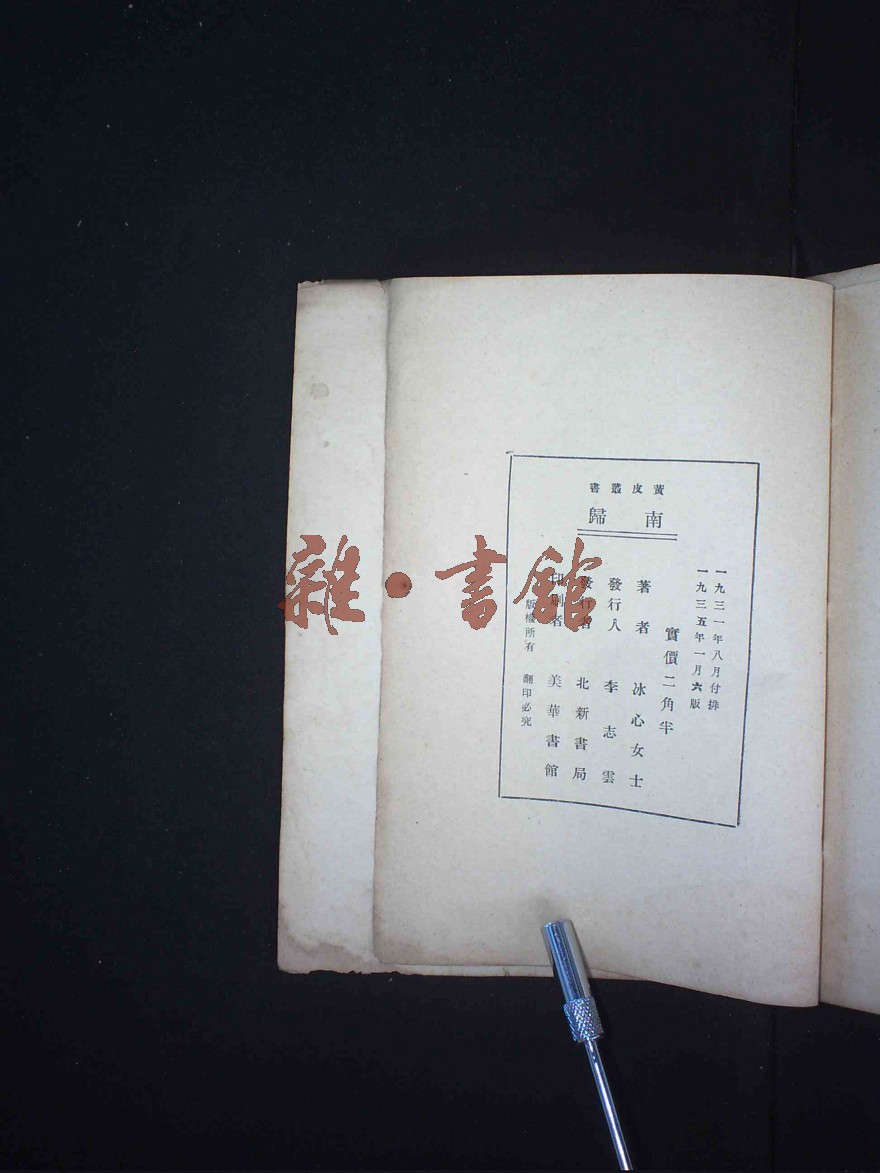 黃皮叢書
南歸
一九三一年八月付排
一九三五年一月六版
實價二角半
著者 冰心女士
發行人 李志雲
發行者 北新書局
印刷者 美華書館
版權所有 翻印必究
雜·書館